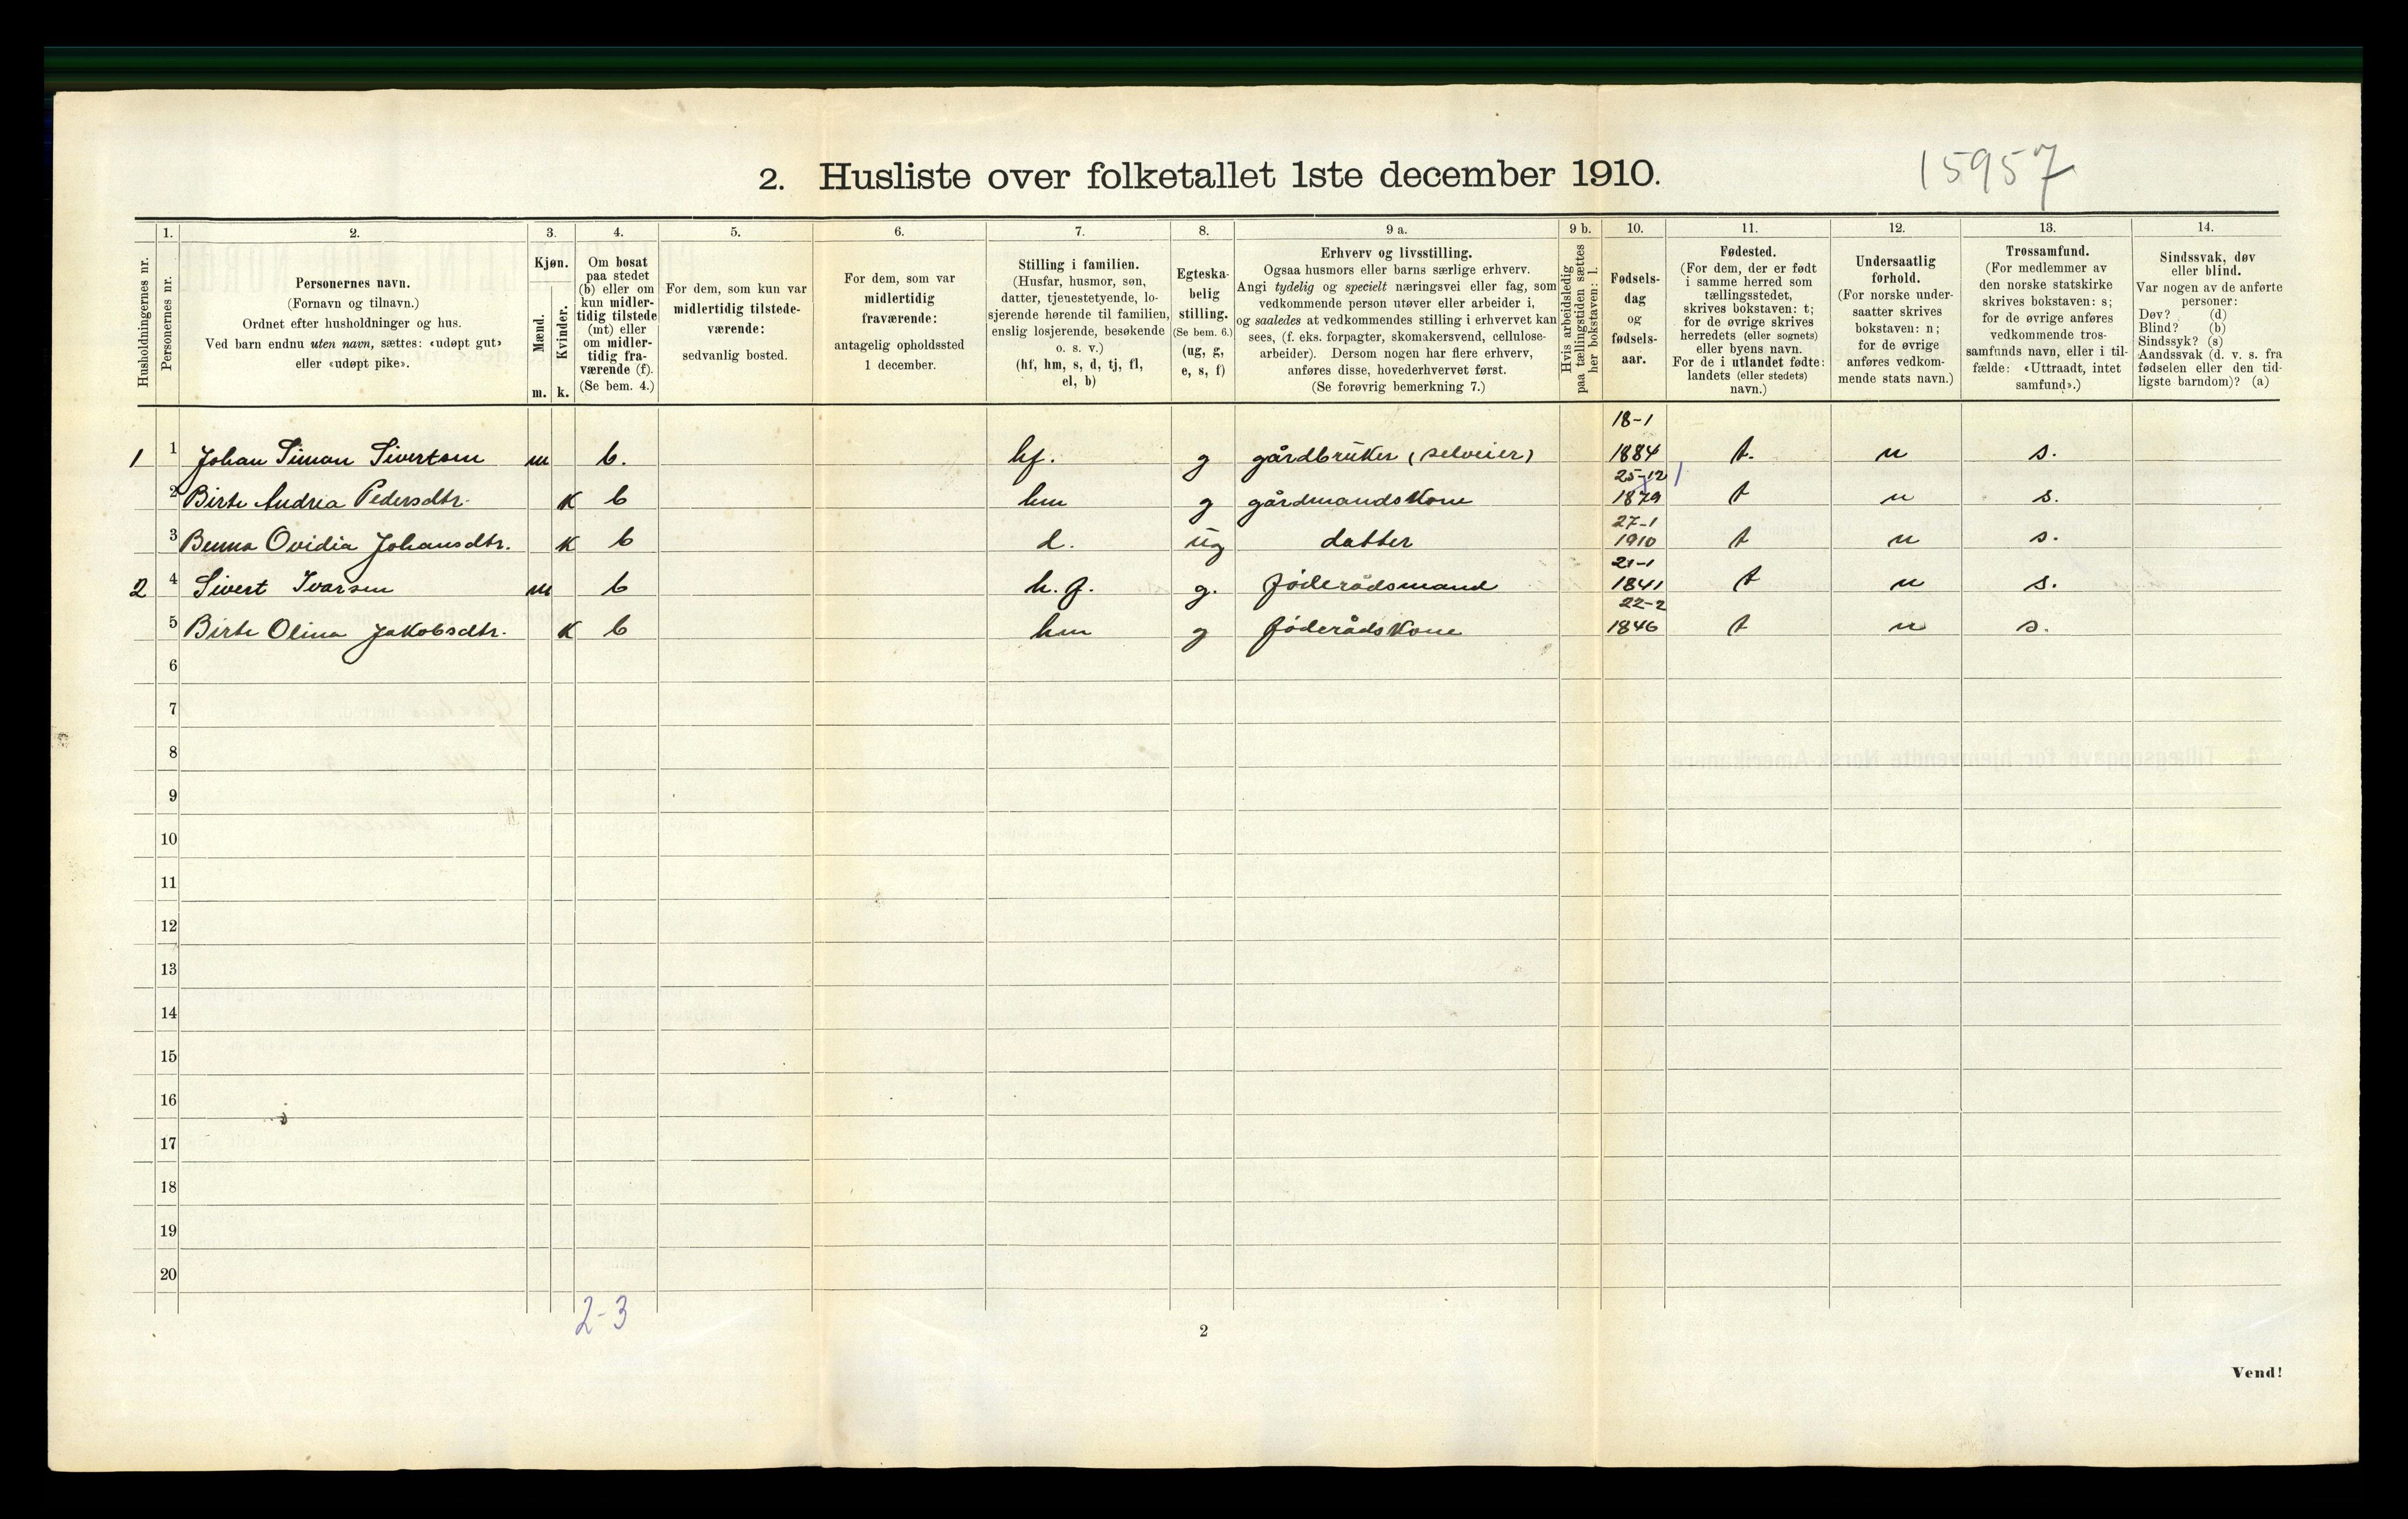 15957
2. Husliste over folketallet 1ste december 1910.
Husholdningernes nr.
1. Personernes nr.
2. Personernes navn.
(Fornavn og tilnavn.)
Ordnet efter husholdninger og hus.
Ved barn endnu uten navn, sættes: «udøpt gut»
eller «udøpt pike».
3. Kjøn.
Mænd. m.
Kvinder. k.
4. Om bosat
paa stedet
(b) eller om
kun midler-
tidig tilstede
(mt) eller
om midler-
tidig fra-
værende (f).
(Se bem. 4.)
5. For dem, som kun var
midlertidig tilstede-
værende:
sedvanlig bosted.
6. For dem, som var
midlertidig
fraværende:
antagelig opholdssted
1 december.
7. Stilling i familien.
(Husfar, husmor, søn,
datter, tjenestetyende, lo-
sjerende hørende til familien,
enslig losjerende, besøkende
o. s. v.)
(hf, hm, s, d, tj, fl,
el, b)
8. Egteska-
belig
stilling.
(Se bem. 6.)
(ug, g,
e, s, f)
9 a. Erhverv og livsstilling.
Ogsaa husmors eller barns særlige erhverv.
Angi tydelig og specielt næringsvei eller fag, som
vedkommende person utøver eller arbeider i,
og saaledes at vedkommendes stilling i erhvervet kan
sees, (f. eks. forpagter, skomakersvend, cellulose-
arbeider). Dersom nogen har flere erhverv,
anføres disse, hovederhvervet først.
(Se forøvrig bemerkning 7.)
9 b. Hvis arbeidsledig
paa tællingstiden sættes
her bokstaven: l.
10. Fødsels-
dag
og
fødsels-
aar.
11. Fødested.
(For dem, der er født
i samme herred som
tællingsstedet,
skrives bokstaven: t;
for de øvrige skrives
herredets (eller sognets)
eller byens navn.
For de i utlandet fødte:
landets (eller stedets)
navn.)
12. Undersaatlig
forhold.
(For norske under-
saatter skrives
bokstaven: n;
for de øvrige
anføres vedkom-
mende stats navn.)
13. Trossamfund.
(For medlemmer av
den norske statskirke
skrives bokstaven: s;
for de øvrige anføres
vedkommende tros-
samfunds navn, eller i til-
fælde: «Uttraadt, intet
samfund».)
14. Sindssvak, døv
eller blind.
Var nogen av de anførte
personer:
Døv? (d)
Blind? (b)
Sindssyk? (s)
Aandssvak (d. v. s. fra
fødselen eller den tid-
ligste barndom)? (a)
18-1
1 1 Johan Simon Sivertsen m b. hf. g gårdbruker (selveier) 1884 t. n s.
25-12
2 Birte Andrea Pedersdtr. k b hm g gårdmandskone 1879 t n s.
27-1
3 Benna Ovidia Johansdtr. k b d. ug datter 1910 t n s.
21-1
2 4 Sivert Ivarsen m b h.f. g. föderådsmand 1841 t n s.
22-2
5 Birte Olina Jakobsdtr. k b hm g föderådskone 1846 t n s.
6
7
8
9
10
11
12
13
14
15
16
17
18
19
20
2-3
2
Vend!